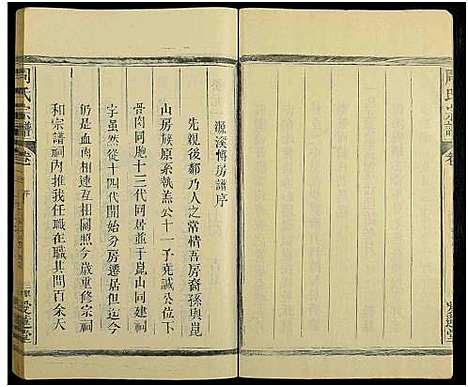 周氏宗譜
濂溪慎房譜序
先親後鄰乃人之常情吾房裔孫與崑
山房族原系執羔公十一子堯誠公位下
骨肉同胞十三代同居並于崑山同建祠
字虽然從十四代開始分房遷居但迄今
仍是血肉相連互相關照今歲重修宗祠
和宗譜祠內推我任職在職其間百余天
周氏宗譜
卷
序
愛蓮堂
愛蓮堂